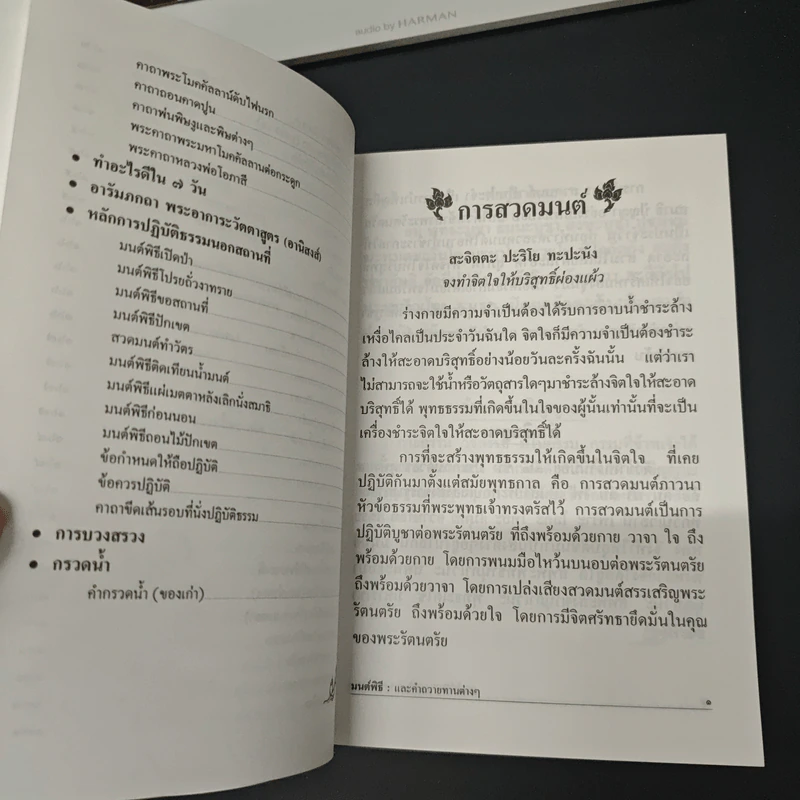 audio by HARMAN
คาถาพระโมคคัลลาน์ดับไฟนรก
คาถาถอนคาดปูน
คาถาพ่นพิษงูและพิษต่างๆ
พระคาถาพระมหาโมคคัลลานต่อกระดูก
พระคาถาหลวงพ่อโอภาสี
• ทำอะไรดีใน ๗ วัน
• อารัมภกถา พระอาการะวัตตาสูตร (อานิสงส์)
• หลักการปฏิบัติธรรมนอกสถานที่
มนต์พิธีเปิดป่า
มนต์พิธีโปรยถั่วงาทราย
มนต์พิธีขอสถานที่
มนต์พิธีปักเขต
สวดมนต์ทำวัตร
มนต์พิธีติดเทียนน้ำมนต์
มนต์พิธีแผ่เมตตาหลังเลิกนั่งสมาธิ
มนต์พิธีก่อนนอน
มนต์พิธีถอนไม้ปักเขต
ข้อกำหนดให้ถือปฏิบัติ
ข้อควรปฏิบัติ
คาถาขีดเส้นรอบที่นั่งปฏิบัติธรรม
• การบวงสรวง
• กรวดน้ำ
คำกรวดน้ำ (ของเก่า)
การสวดมนต์
สะจิตตะ ปะริโย ทะปะนัง
จงทำจิตใจให้บริสุทธิ์ผ่องแผ้ว
ร่างกายมีความจำเป็นต้องได้รับการอาบน้ำชำระล้าง
เหงื่อไคลเป็นประจำวันฉันใด จิตใจก็มีความจำเป็นต้องชำระ
ล้างให้สะอาดบริสุทธิ์อย่างน้อยวันละครั้งฉันนั้น แต่ว่าเรา
ไม่สามารถจะใช้น้ำหรือวัตถุสารใดๆมาชำระล้างจิตใจให้สะอาด
บริสุทธิ์ได้ พุทธธรรมที่เกิดขึ้นในใจของผู้นั้นเท่านั้นที่จะเป็น
เครื่องชำระจิตใจให้สะอาดบริสุทธิ์ได้
การที่จะสร้างพุทธธรรมให้เกิดขึ้นในจิตใจ ที่เคย
ปฏิบัติกันมาตั้งแต่สมัยพุทธกาล คือ การสวดมนต์ภาวนา
หัวข้อธรรมที่พระพุทธเจ้าทรงตรัสไว้ การสวดมนต์เป็นการ
ปฏิบัติบูชาต่อพระรัตนตรัย ที่ถึงพร้อมด้วยกาย วาจา ใจ ถึง
พร้อมด้วยกาย โดยการพนมมือไหว้นบนอบต่อพระรัตนตรัย
ถึงพร้อมด้วยวาจา โดยการเปล่งเสียงสวดมนต์สรรเสริญพระ
รัตนตรัย ถึงพร้อมด้วยใจ โดยการมีจิตศรัทธายึดมั่นในคุณ
ของพระรัตนตรัย
มนต์พิธี : และคำถวายทานต่างๆ
๑